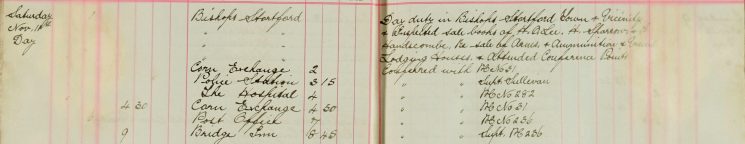 Saturday 1 Bishops Stortford Day duty in Bishops Stortford Town & Vicinity
Nov. 11th " & Inspected sale books of H. A. Lee. A. Sharron
Day " Handscombe, Re sale of Arms & Ammunition &
" Lodging Houses. & Attended Conference Points
Corn Exchange 2 Conferred with PC No 31
Police Station 3 15 " Supt Sullivan
The Hospital 4 " PC No 282
4 30 Corn Exchange 4 30 " PC No 31
Post Office 7 " PC No 236
9 Bridge Inn 8 45 " Supt. PC 236